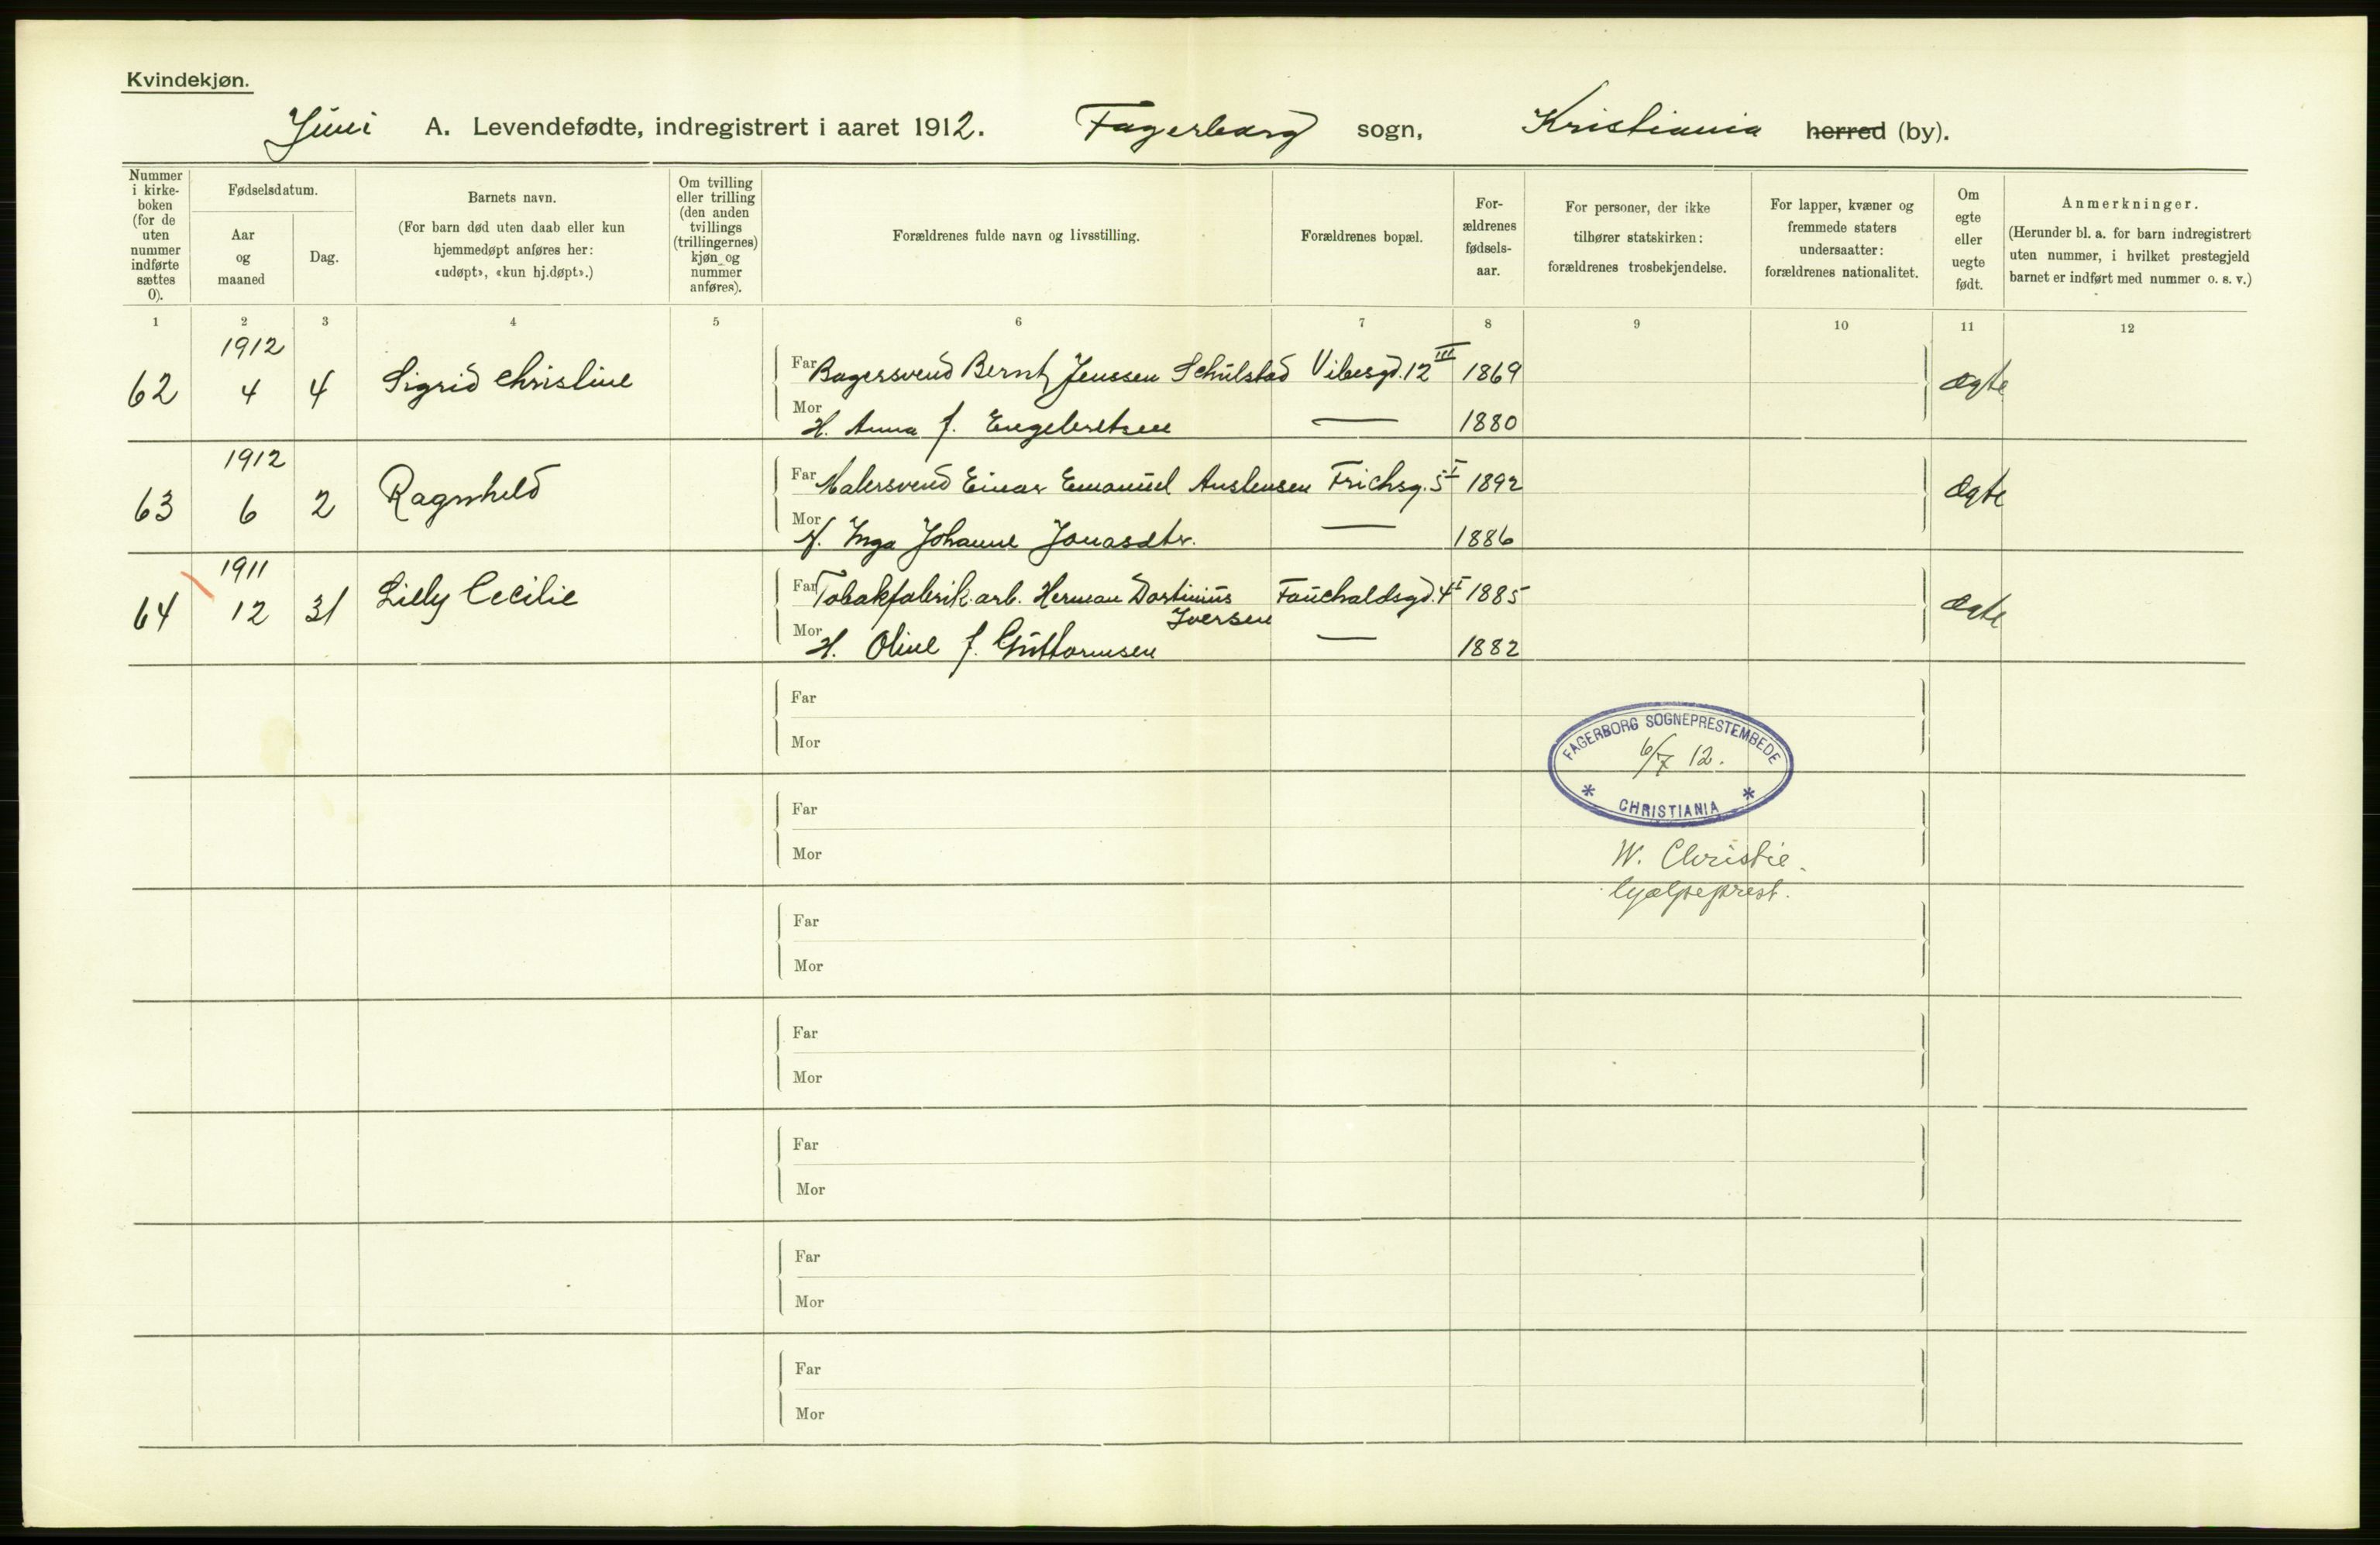 Kvindekjøn.
Juni A. Levendefødte, indregistrert i aaret 1912. Fagerborg sogn, Kristiania herred (by).
Nummer i kirke-boken (for de uten nummer indførte sættes 0).
Fødselsdatum.
Aar og maaned
Dag.
Barnets navn.
(For barn død uten daab eller kun hjemmedøpt anføres her: «udøpt», «kun hj.døpt».)
Om tvilling eller trilling (den anden tvillings (trillingernes) kjøn og nummer anføres).
Forældrenes fulde navn og livsstilling.
Forældrenes bopæl.
For-ældrenes fødsels-aar.
For personer, der ikke tilhører statskirken: forældrenes trosbekjendelse.
For lapper, kvæner og fremmede staters undersaatter: forældrenes nationalitet.
Om egte eller uegte født.
Anmerkninger.
(Herunder bl. a. for barn indregistrert uten nummer, i hvilket prestegjeld barnet er indført med nummer o. s. v.)
1 2 3 4 5 6 7 8 9 10 11 12
1912
62 4 4 Sigrid Christine Far Bagersvend Bernt Jenssen Schulstad Vibesgd. 12 III 1869 ægte
Mor H. Anna f. Engebretsen — 1880
1912
63 6 2 Ragnhild Far Malersvend Einar Emanuel Austensen Frichsg. 5 I 1892 ægte
Mor H. Inga Johanne Jonasdtr. — 1886
1911
64 12 31 Lilly Cecilie Far Tobakfabrik.arb. Herman Dortinius Fauchaldsgd. 4 I 1885 ægte
Iversen
Mor H. Oline f. Guttormsen — 1882
Far
Mor
FAGERBORG SOGNEPRESTEMBEDE
6/7 12.
* CHRISTIANIA *
Far
Mor
W. Christie.
hjælpeprest.
Far
Mor
Far
Mor
Far
Mor
Far
Mor
Far
Mor